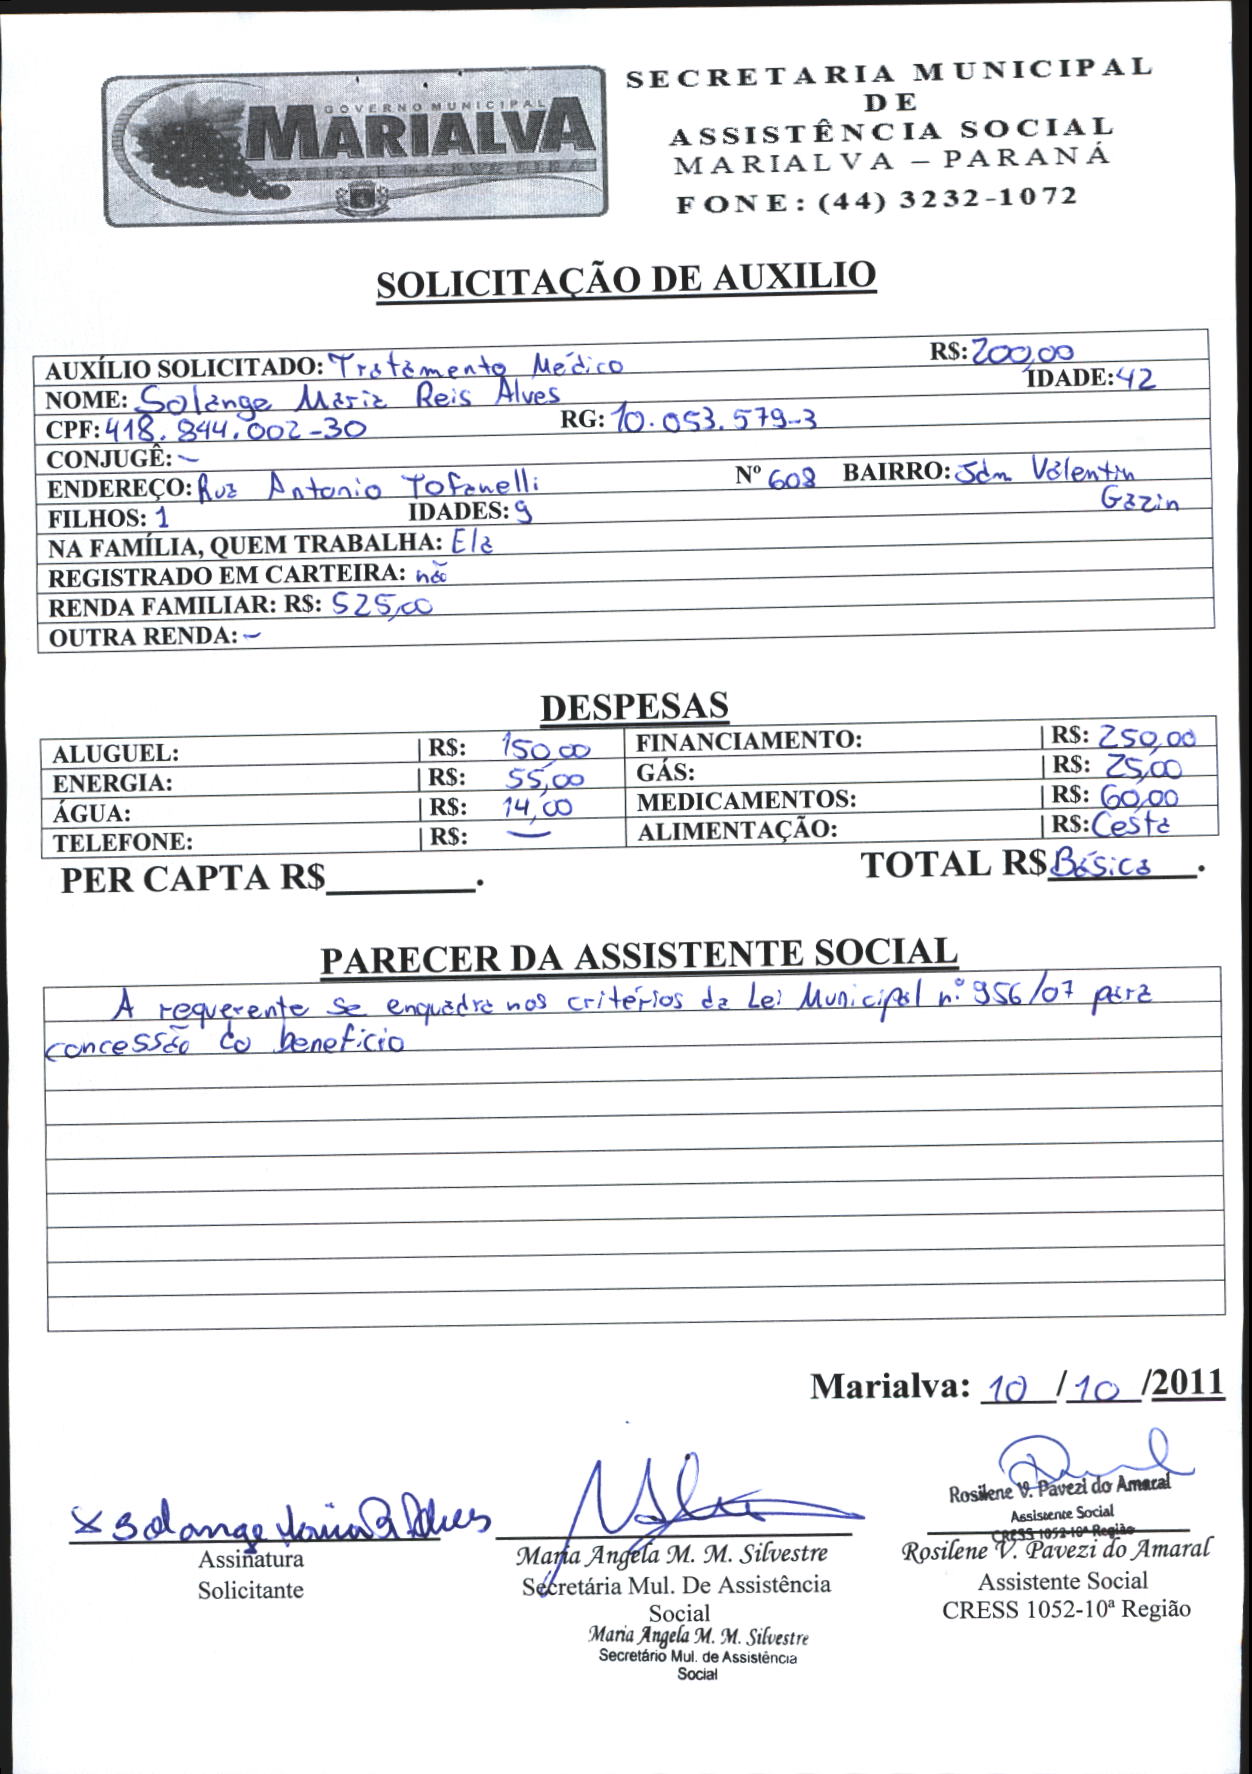 GOVERNO MUNICIPAL
MARIALVA
SECRETARIA MUNICIPAL
DE
ASSISTÊNCIA SOCIAL
MARIALVA – PARANÁ
FONE: (44) 3232-1072
SOLICITAÇÃO DE AUXILIO
AUXÍLIO SOLICITADO: Tratamento Médico R$: 200,00
NOME: Solange Maria Reis Alves IDADE: 42
CPF: 418.844.002-30 RG: 10.053.579-3
CONJUGÊ: –
ENDEREÇO: Rua Antonio Tofanelli Nº 608 BAIRRO: Jdm Valentin
Gazin
FILHOS: 1 IDADES: 9
NA FAMÍLIA, QUEM TRABALHA: Ela
REGISTRADO EM CARTEIRA: não
RENDA FAMILIAR: R$: 525,00
OUTRA RENDA: –
DESPESAS
ALUGUEL: | R$: 150,00 FINANCIAMENTO: | R$: 250,00
ENERGIA: | R$: 55,00 GÁS: | R$: 25,00
ÁGUA: | R$: 14,00 MEDICAMENTOS: | R$: 60,00
TELEFONE: | R$: — ALIMENTAÇÃO: | R$: Cesta
PER CAPTA R$________. TOTAL R$ Básica.
PARECER DA ASSISTENTE SOCIAL
A requerente se enquadra nos critérios da Lei Municipal nº 956/07 para
concessão do benefício
Marialva: 10 / 10 /2011
x Solange Maria R Alves
Assinatura
Solicitante
Maria Angela M. M. Silvestre
Secretária Mul. De Assistência
Social
Maria Angela M. M. Silvestre
Secretário Mul. de Assistência
Social
Rosilene V. Pavezi do Amaral
Assistente Social
CRESS 1052-10ª Região
Rosilene V. Pavezi do Amaral
Assistente Social
CRESS 1052-10ª Região